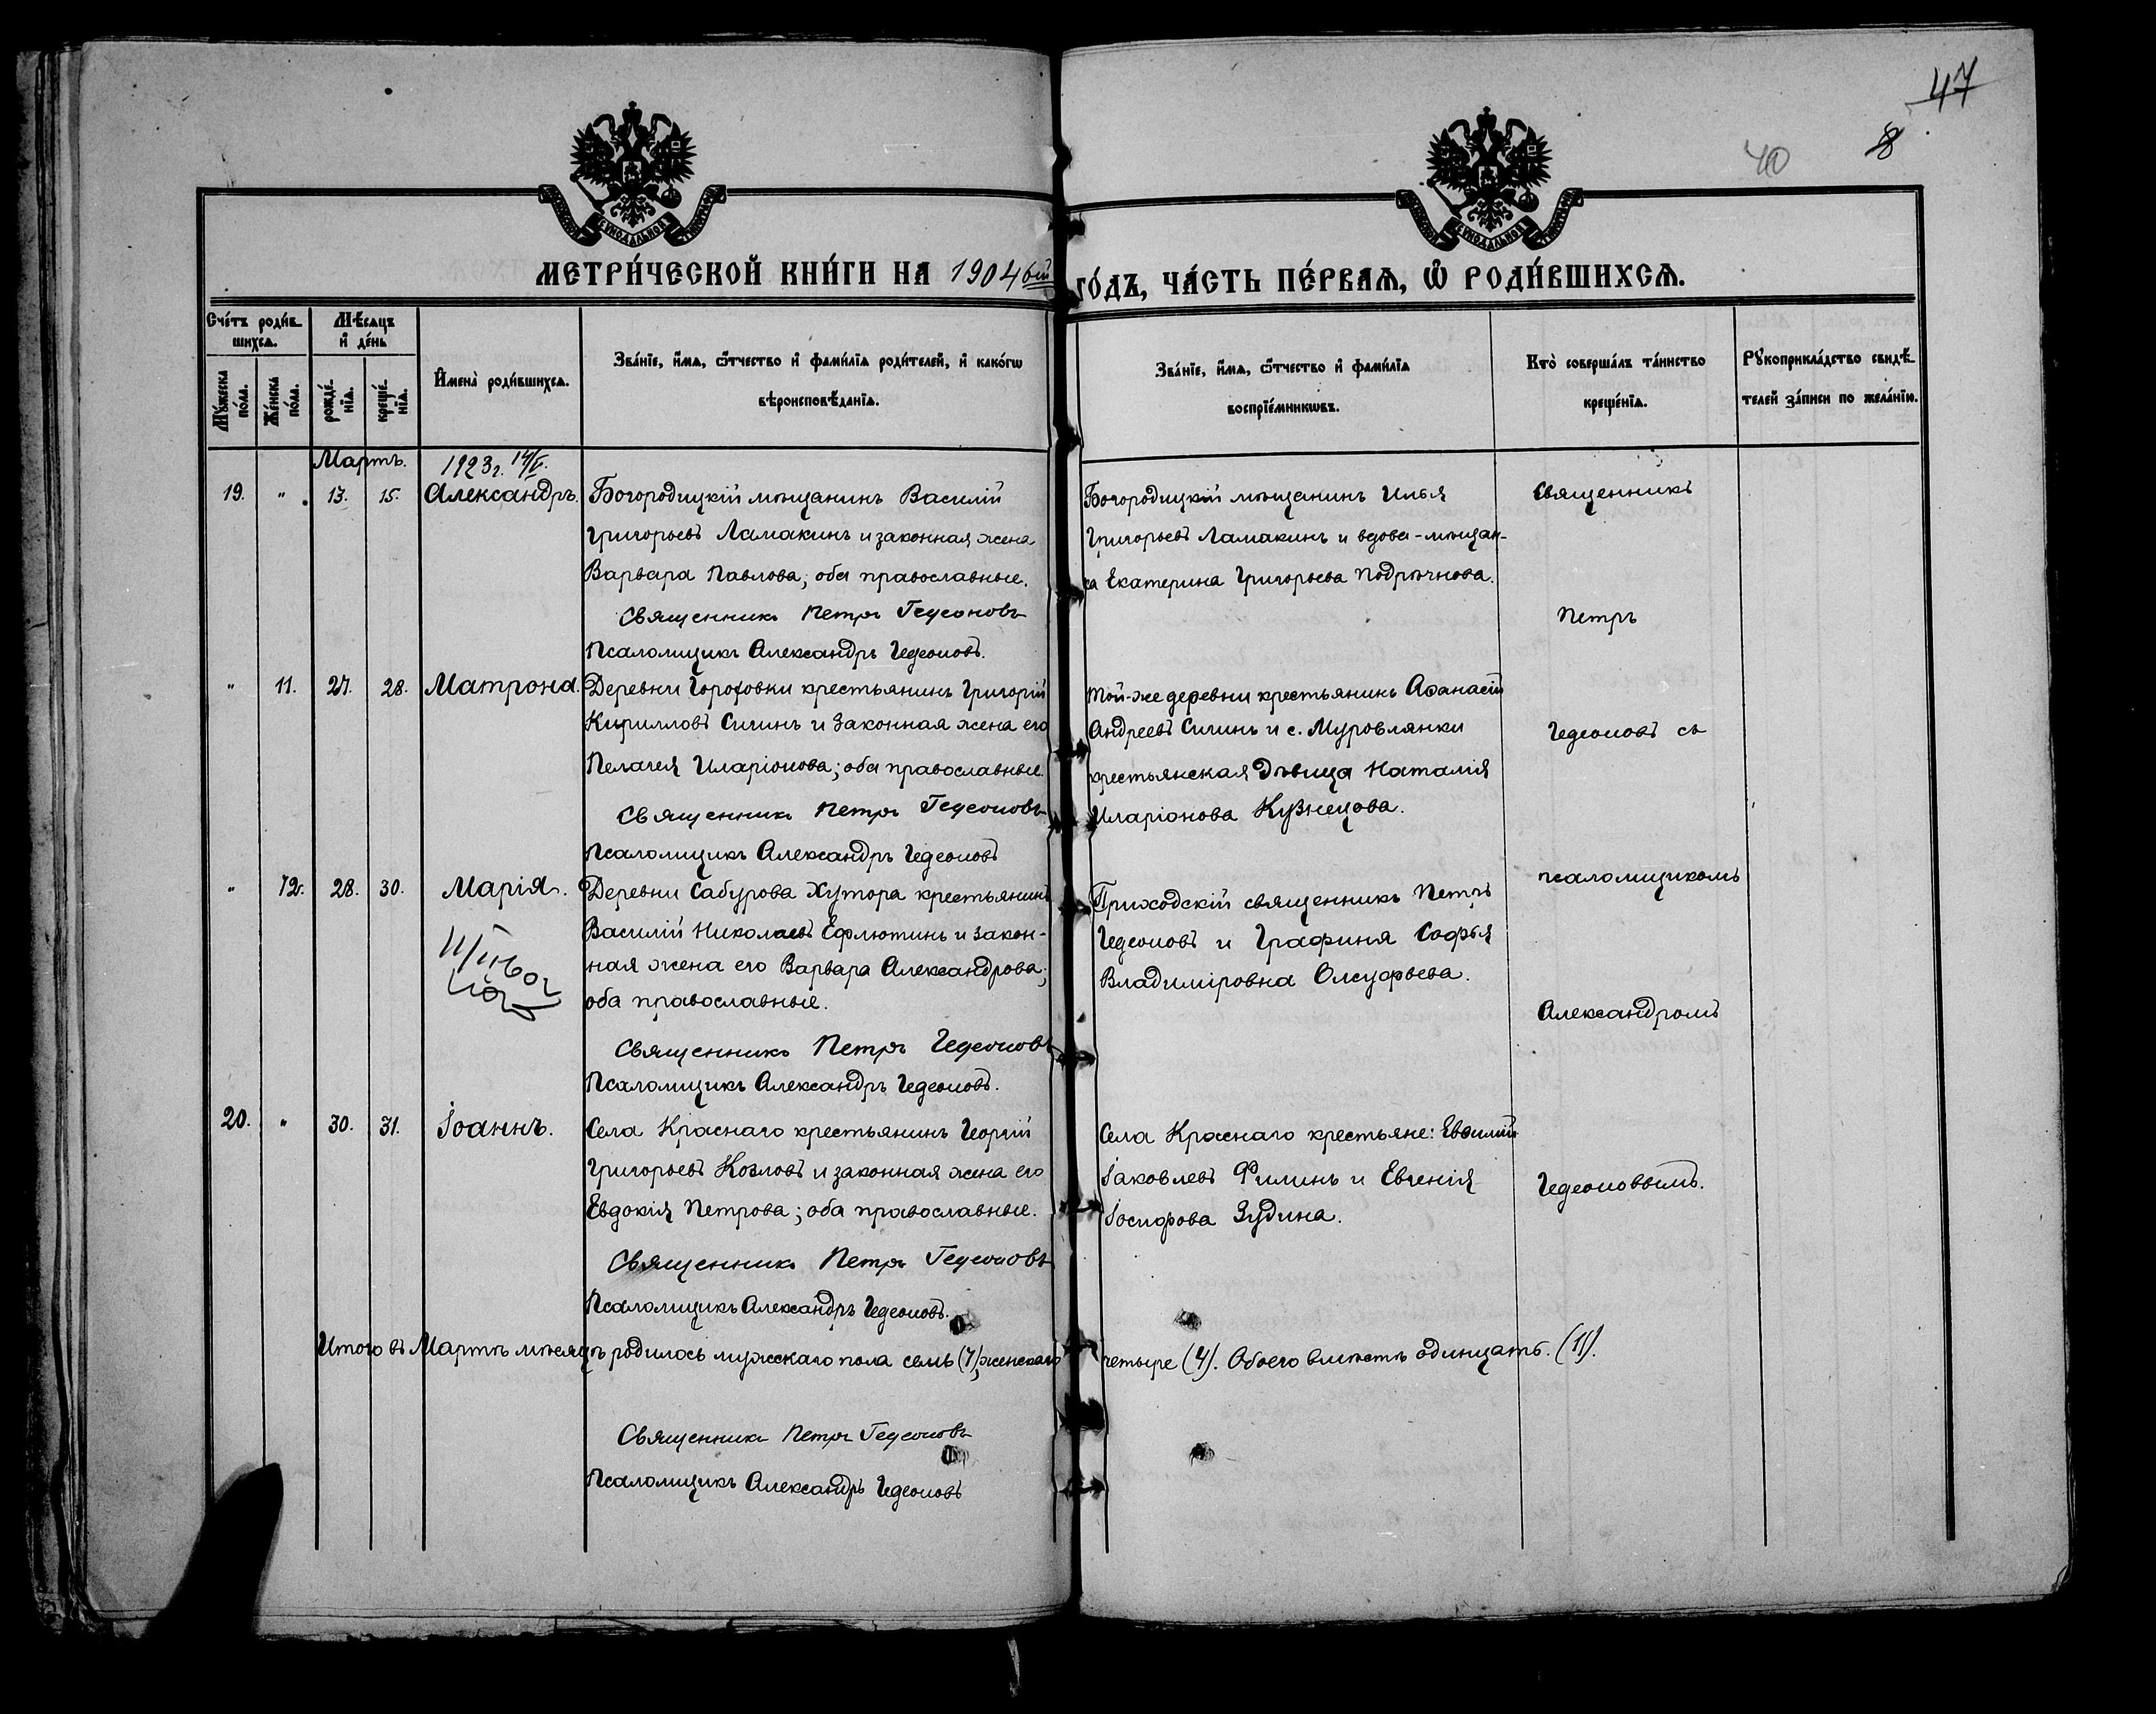 47
40
8
МЕТРИ́ЧЕСКОЙ КНИ́ГИ НА 1904ый ГО́ДЪ, ЧА́СТЬ ПЕ́РВАѦ, Ѽ РОДИ́ВШИХСѦ.
Сче́тъ роди́в-
шихсѧ.
Мѣ́сѧцъ
и҆ де́нь
И҆мена̀ роди́вшихсѧ.
Зва́нїе, и҆́мѧ, ѻ҆́тчество и҆ фами́лїѧ роди́телей, и҆ како́гѡ
вѣроисповѣ́данїѧ.
Зва́нїе, и҆́мѧ, ѻ҆́тчество и҆ фами́лїѧ
воспрїе́мникѡвъ.
Кто̀ соверша́лъ та́инство
креще́нїѧ.
Рꙋкоприкла́дство свидѣ́-
телей за́писи по жела́нїю.
Мꙋ́жеска
по́ла.
Же́нска
по́ла.
рожде́-
нїѧ.
креще́-
нїѧ.
Мартъ.
1923г. 14/V.
19. " 13. 15. Александръ. Богородицкій мѣщанинъ Василій
Григорьевъ Ламакинъ и законная жена
Варвара Павлова; оба православные.
Священникъ Петръ Гедеоновъ
Псаломщикъ Александръ Гедеоновъ.
Богородицкій мѣщанинъ Илья
Григорьевъ Ламакинъ и вдова-мѣщан-
ка Екатерина Григорьева Подрѣчнова.
Священникъ
Петръ
" 11. 27. 28. Матрона. Деревни Гороховки крестьянинъ Григорій
Кирилловъ Сигинъ и законная жена его
Пелагея Иларіонова; оба православные.
Священникъ Петръ Гедеоновъ
Псаломщикъ Александръ Гедеоновъ
Той-же деревни крестьянинъ Аѳанасій
Андреевъ Сигинъ и с. Муровлянки
крестьянская дѣвица Наталія
Иларіонова Кузнецова.
Гедеоновъ съ
" 12. 28. 30. Марія. Деревни Сабурова Хутора крестьянинъ
Василій Николаевъ Ефлютинъ и закон-
ная жена его Варвара Александрова;
оба православные.
Священникъ Петръ Гедеоновъ
Псаломщикъ Александръ Гедеоновъ.
Приходскій священникъ Петръ
Гедеоновъ и Графиня Софья
Владиміровна Олсуфьева.
псаломщикомъ
Александромъ
20. " 30. 31. Іоаннъ. Села Краснаго крестьянинъ Георгій
Григорьевъ Козловъ и законная жена его
Евдокія Петрова; оба православные.
Священникъ Петръ Гедеоновъ
Псаломщикъ Александръ Гедеоновъ.
Села Краснаго крестьяне:
Іаковлевъ Филинъ и Евгенія
Іосифова Зудина.
Гедеоновымъ.
Итого въ Мартѣ мѣсяцѣ родилось мужскаго пола семь (7), женскаго четыре (4). Обоего вмѣстѣ одинцать. (11).
Священникъ Петръ Гедеоновъ
Псаломщикъ Александръ Гедеоновъ